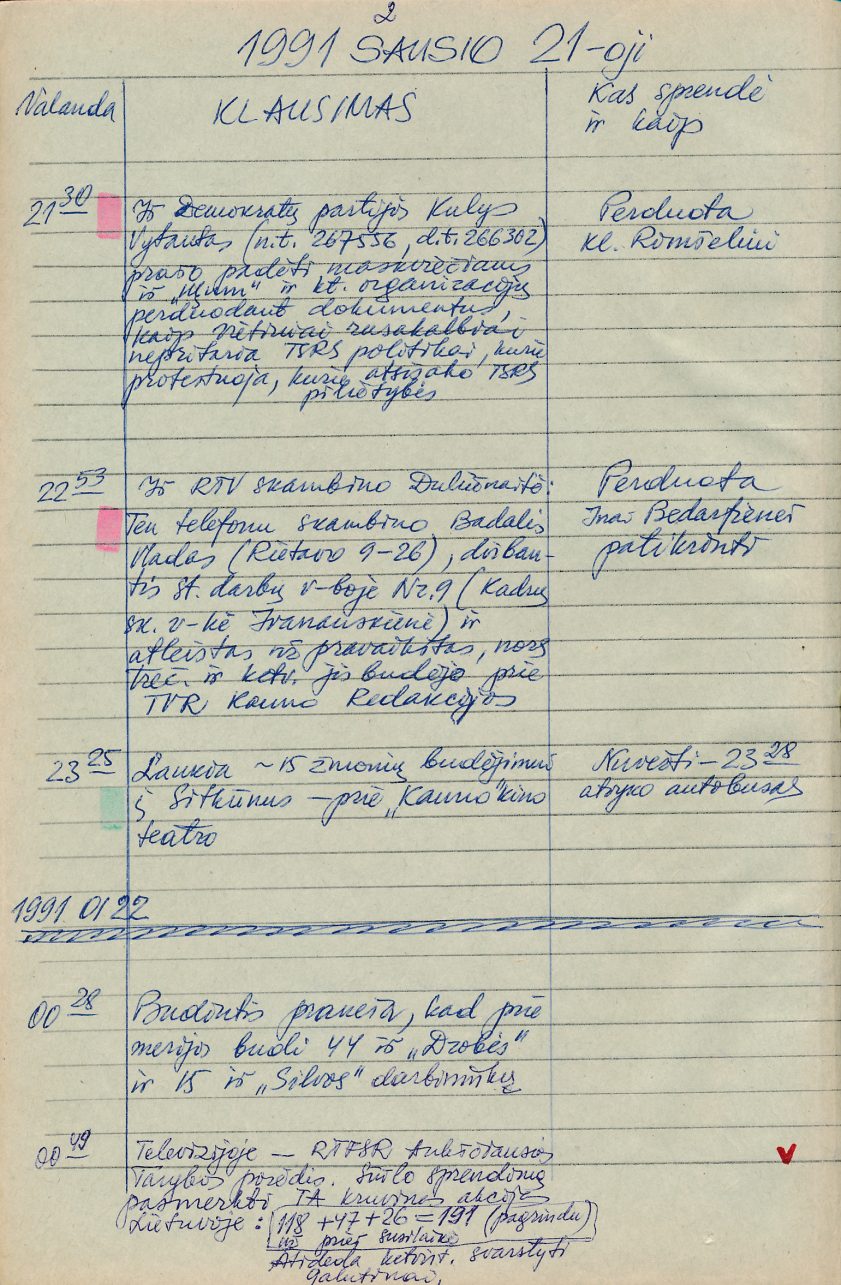 2
1991 SAUSIO 21-oji
Valanda
KLAUSIMAS
Kas sprendė
ir kaip
21 30
Iš Demokratų partijos Kulys
Vytautas (n.t. 267556, d.t. 266302)
prašo padėti maskviečiams
iš ir kt. organizacijų
perduodant dokumentus,
kaip vietiniai rusakalbiai
nepritaria TSRS politikai, kurie
protestuoja, kurie atsisako TSRS
pilietybės
Perduota
kl. Rimšelini
22 53
Iš RTV skambino
Ten telefonu skambino Badalis
Vladas (Rietavo 9-26), dirban-
tis st. darbų v-boje Nr.9 (Kadrų
sk. v-kė Ivanauskienė) ir
atleistas už pravaikštas, nors
treč. ir ketv. jis budėjo prie
TVR Kauno Redakcijos
Perduota
Inai
patikrinti
23 25
Laukia ~15 žmonių budėjimui
į Sitkūnus – prie „Kauno" kino
teatro
Nuvežti – 23 28
atvyko autobusas
1991 01 22
00 28
Budintis praneša, kad prie
merijos budi 44 iš „Drobės"
ir 15 iš „Silvos" darbininkų
00 49
Televizijoje — RTFSR Aukščiausios
Tarybos posėdis. Siūlo sprendimą
pasmerkti TA kruvinas akcijas
Lietuvoje: 118 + 47 + 26 = 191 (pagrindu)
už prieš susilaikė
Atideda ketvirt. svarstyti
galutinai.